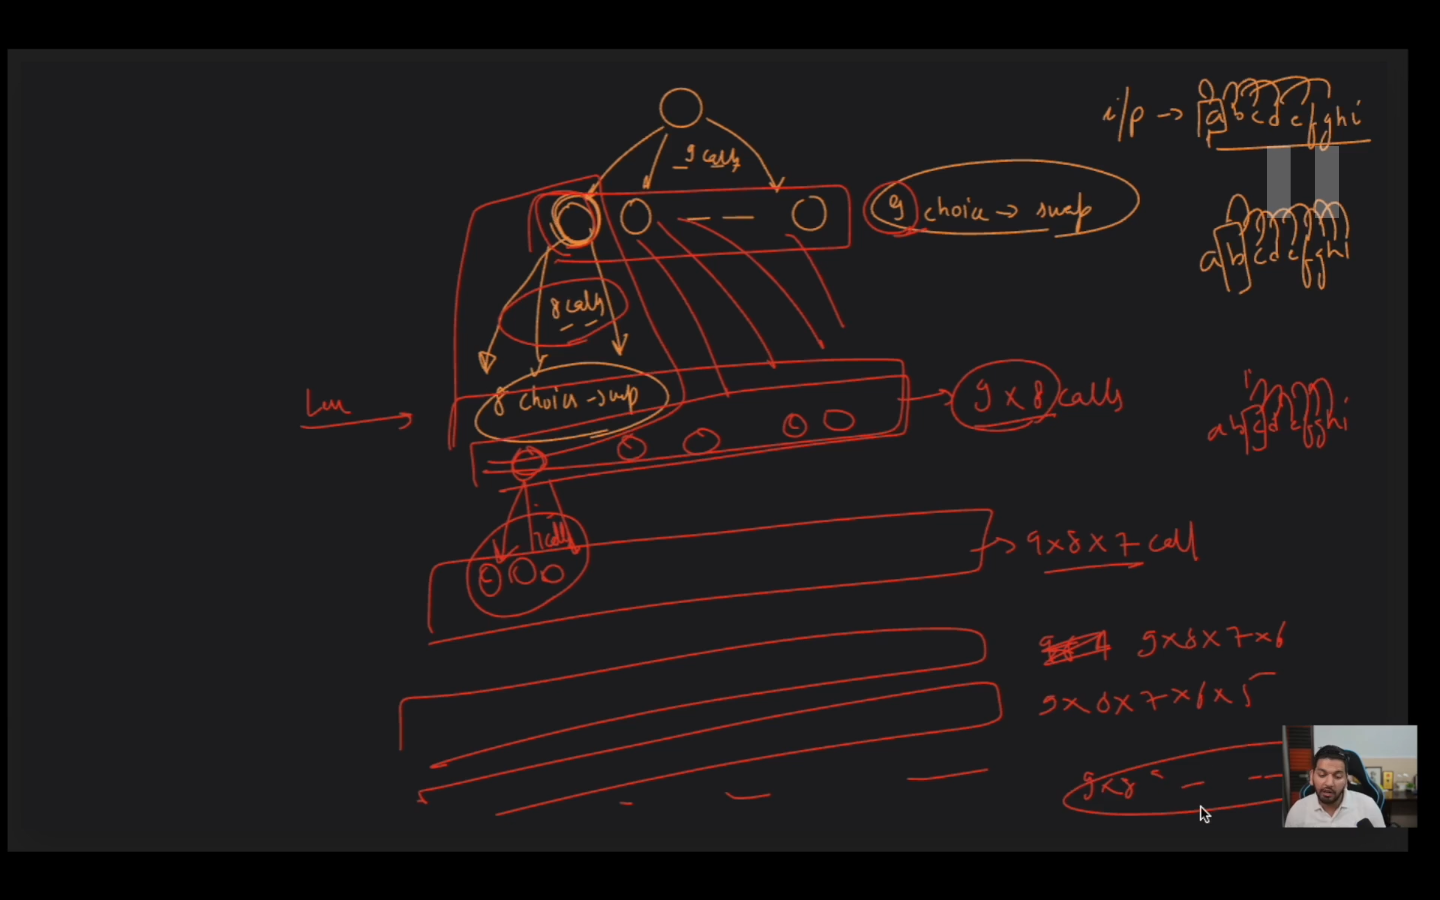 i/p → abcdefghi
9 calls
9 choice → swap
abcdefghi
8 calls
8 choice → swap
9 x 8 calls
abcdefghi
7 calls
9x8x7 call
9x8x7x6
9x8x7x6x5
9x8